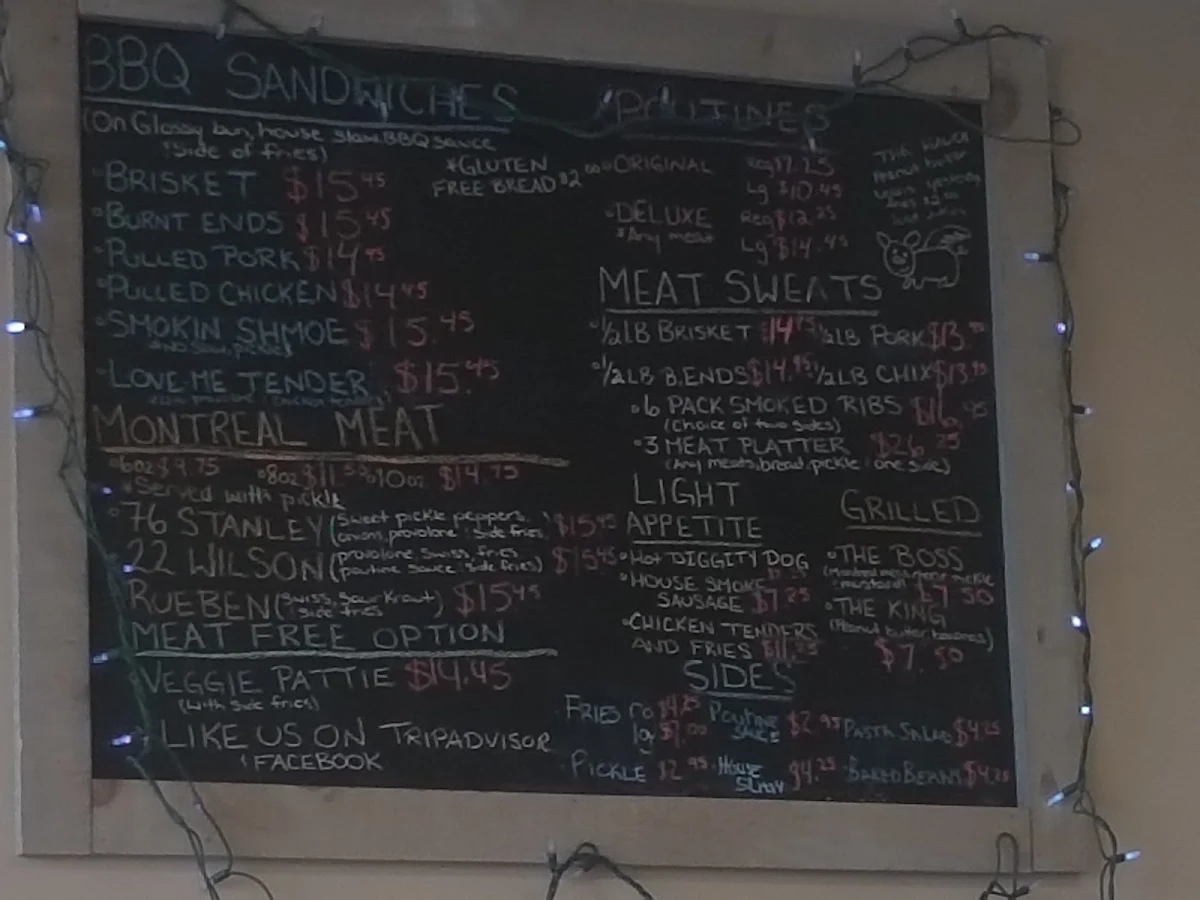 BBQ SANDWICHES
(On Glossy bun, house slaw BBQ sauce
(Side of fries)
*GLUTEN
FREE BREAD $2.00
BRISKET $15.45
BURNT ENDS $15.45
PULLED PORK $14.45
PULLED CHICKEN $14.45
SMOKIN SHMOE $15.45
LOVE ME TENDER $15.45
MONTREAL MEAT
6oz $9.75 8oz $11.50 10oz $14.75
*Served with pickle
76 STANLEY (Sweet pickle peppers, onions, provolone Side fries) $15.45
22 WILSON (provolone, swiss, fries poutine sauce side fries) $15.45
RUEBEN (Swiss, Saur Kraut Side fries) $15.45
MEAT FREE OPTION
VEGGIE PATTIE $14.45
(With Side fries)
LIKE US ON TRIPADVISOR
FACEBOOK
POUTINES
ORIGINAL Reg $7.25
Lg $10.45
DELUXE Reg $12.25
*Any meat Lg $14.45
MEAT SWEATS
1/2 LB BRISKET $14.95 1/2 LB PORK $13.95
1/2 LB B.ENDS $14.95 1/2 LB CHIX $13.95
6 PACK SMOKED RIBS $16.95
(Choice of two sides)
3 MEAT PLATTER $26.25
(Any meats, bread, pickle one side)
LIGHT
APPETITE
HOT DIGGITY DOG
HOUSE SMOKE
SAUSAGE $7.25
CHICKEN TENDERS
AND FRIES
GRILLED
THE BOSS
mustard) $7.50
THE KING
(Peanut butter bananas)
$7.50
SIDES
FRIES $4.25 Poutine SAUCE $2.95 PASTA SALAD $4.25
lg $7.00
PICKLE $2.95 House Slaw $4.25 BAKED BEANS $4.25